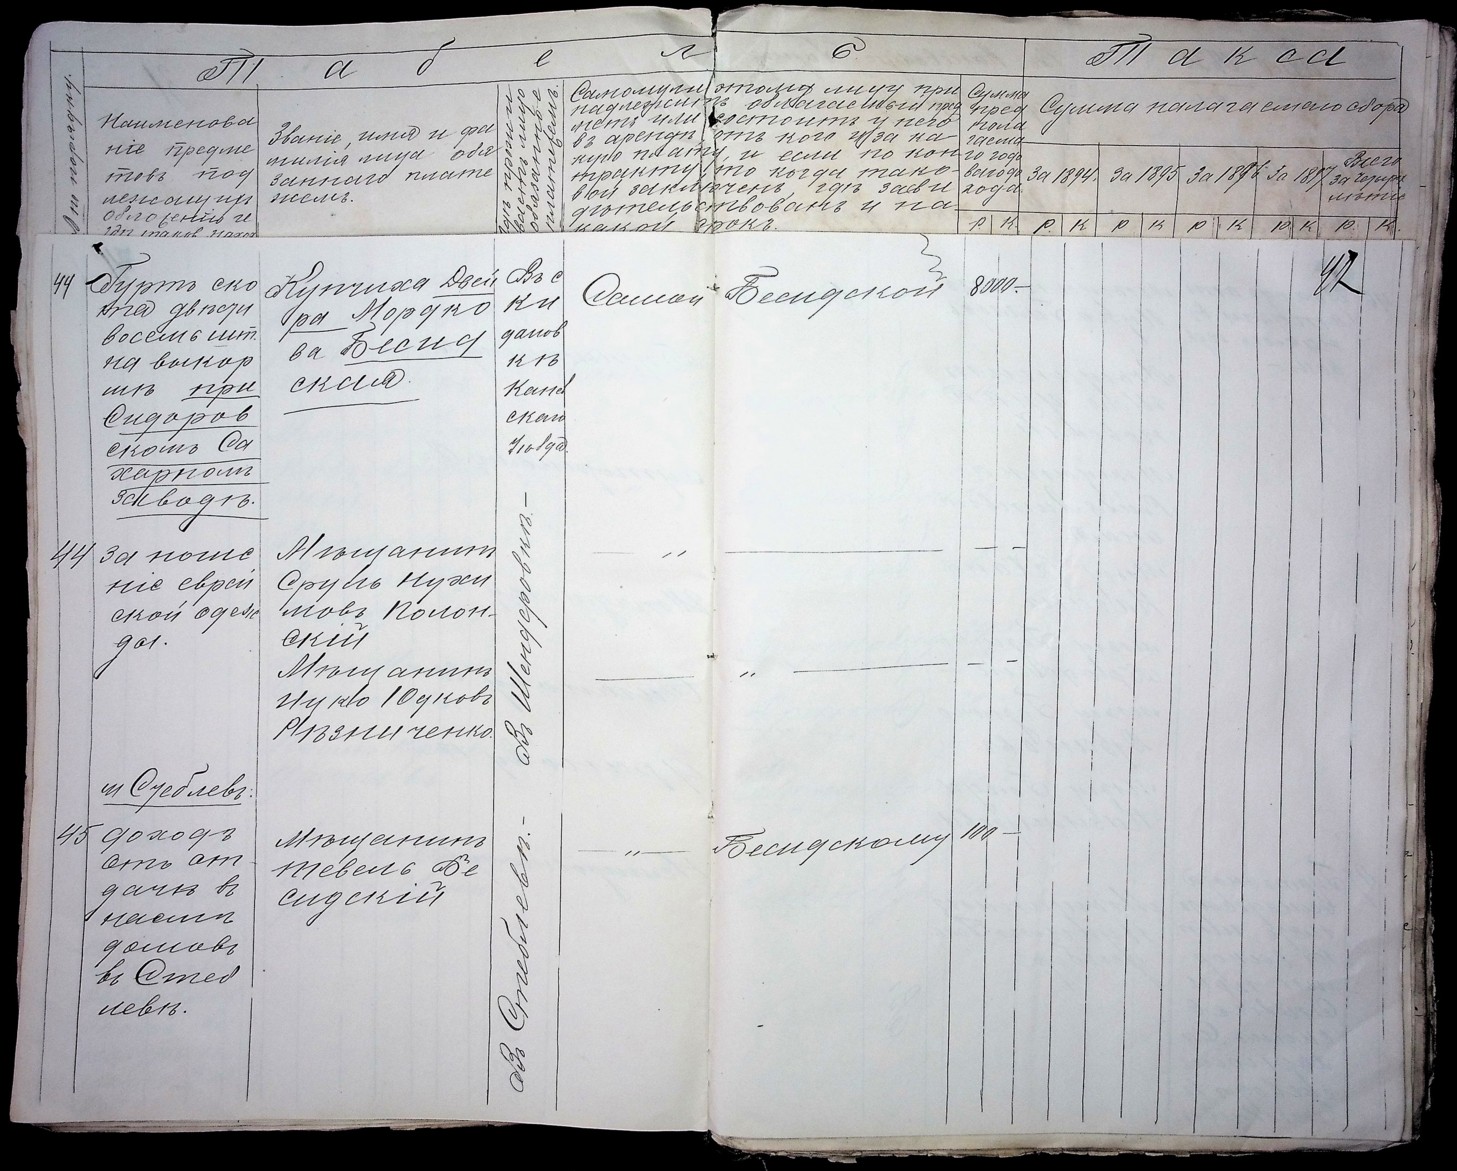 Табель
Такса
Наименова
ніе предме
товъ под
лежащихъ
обложенію и
гдѣ таков. наход
Званіе, имя и фа
милія лица обя
заннаго плате
жемъ.
Самому ли этому лицу при
надлежитъ облагаемый пред
метъ или состоитъ у него
въ арендѣ отъ кого и за ка
кую плату, и если по кон
тракту, то когда тако-
вой заключенъ, гдѣ засви
дѣтельствованъ и на
какой срокъ.
Сумма
пред
пола
гаема
го годо
ваго до
хода
Сумма налагаемаго сбора
За 1894. За 1895 За 1896. За 1897 Всего
за четыре
Р К Р К Р К Р К Р К Р К
42
44 Гуртъ ско
та двѣсти
восемь шт.
на выкор
мкѣ при
Сидоров
скомъ Са
харномъ
Заводѣ.
Купчиха Двей
ра Мордко
ва Бесид
ская.
Въ с
Ки
дановкѣ
Канев
скаго
Уѣзда.
Самой Бесидской 8000-
44 За ноше
ніе еврей
ской одеж
ды.
Мѣщанинъ
Сруль Нухи
мовъ Полон-
скій
Мѣщанинъ
Нухто Юдковъ
Рѣзниченко.
Въ Шендеровкѣ.-
— „ — — —
— „ — — —
м Стеблевъ.
45 доходъ
отъ от-
дачи въ
наемъ
домовъ
въ Стеб
левѣ.
Мѣщанинъ
Тевель Бе
сидскій
Въ Стеблевѣ.-
— „ — Бесидскому 100 —